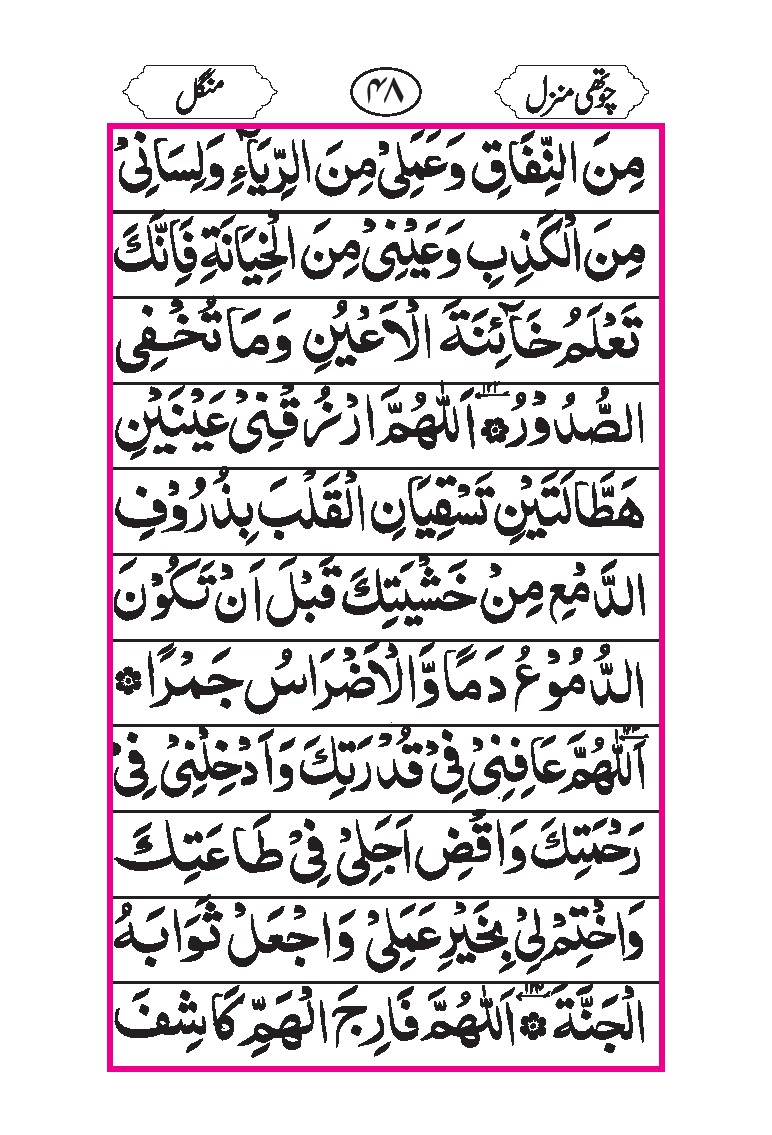 چوتھی منزل
۴۸
منگل
مِنَ النِّفَاقِ وَعَمَلِیْ مِنَ الرِّيَآءِ وَلِسَانِیْ
مِنَ الْكَذِبِ وَعَيْنِیْ مِنَ الْخِيَانَةِ فَاِنَّكَ
تَعْلَمُ خَآئِنَةَ الْاَعْيُنِ وَمَا تُخْفِی
الصُّدُوْرُ ۞ ۱۲۲ اَللّٰهُمَّ ارْزُقْنِیْ عَيْنَيْنِ
هَطَّالَتَيْنِ تَسْقِيَانِ الْقَلْبَ بِذُرُوْفِ
الدَّمْعِ مِنْ خَشْيَتِكَ قَبْلَ اَنْ تَكُوْنَ
الدُّمُوْعُ دَمًا وَّالْاَضْرَاسُ جَمْرًا ۞
۱۲۳ اَللّٰهُمَّ عَافِنِیْ فِیْ قُدْرَتِكَ وَاَدْخِلْنِیْ فِیْ
رَحْمَتِكَ وَاقْضِ اَجَلِیْ فِیْ طَاعَتِكَ
وَاخْتِمْ لِیْ بِخَيْرِ عَمَلِیْ وَاجْعَلْ ثَوَابَهُ
الْجَنَّةَ ۞ ۱۲۴ اَللّٰهُمَّ فَارِجَ الْهَمِّ كَاشِفَ